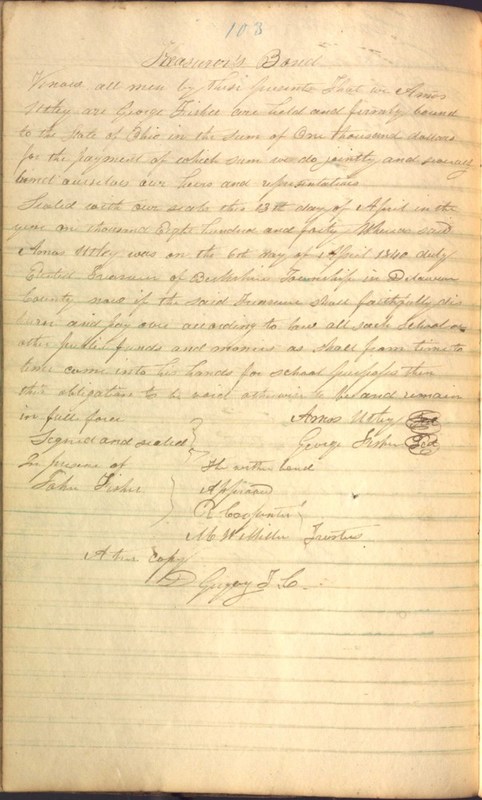 103
Treasurer's Bond
Know all men by these presents that we Amos
Utley are George Fisher are held and firmly bound
to the State of Ohio in the sum of One thousand dollars
for the payment of which sum we do jointly and severaly
ourselves our heirs and representatives
Sealed with our seals this 13th day of April in the
year on thousand Eight hundred and forty Whereas said
Amos Utley was on the 6th day of April 1840 duly
Elected Treasurer of Berkshire Township in Delaware
County now if the said treasurer shall faithfully dis
burse and pay over according to law all such School or
other public funds and monies as shall from time to
time come into his hands for school purposes then
this obligation to be void otherwise to be and remain
in full force
Amos Utley Seal
Signed and sealed
George Fisher Seal
In presence of
John Fisher
The within bond
Approved
R Carpenter
M W Miller Trustees
A true Copy
D Gregory T C